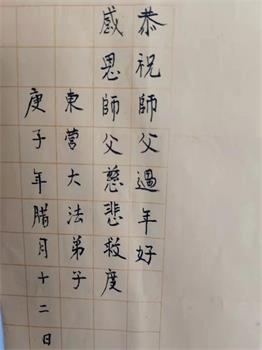 恭祝師父過年好
感恩師父慈悲救度
東營大法弟子
庚子年腊月十二日